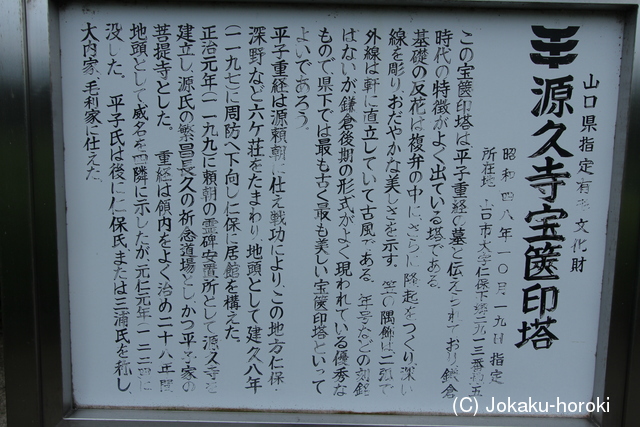 山口県指定有形文化財
源久寺宝篋印塔
昭和四八年一〇月一九日 指定
所在地 山口市大字仁保下郷
この宝篋印塔は平子重経の墓と伝えられており鎌倉
時代の特徴がよく出ている塔である。
基礎の反花は複弁の中にさらに隆起をつくり深い
線を彫り、おだやかな美しさを示す。笠の隅飾は二弧で
外線は軒に直立していて古風である。年号などの刻銘
はないが鎌倉後期の形式がよく現われている優秀な
もので、県下では最も古く最も美しい宝篋印塔といって
よいであろう。
平子重経は源頼朝に仕え戦功により、この地方仁保・
深野など六ケ荘をたまわり、地頭として建久八年
(一一九七)に周防へ下向し仁保に居館を構えた。
正治元年(一一九九)に頼朝の霊碑安置所として源久寺を
建立し、源氏の繁昌長久の祈念道場とし、かつ平子家の
菩提寺とした。 重経は領内をよく治め二十八年間
地頭として威名を四隣に示したが、元仁元年(一二二四)に
没した。 平子氏は後に仁保氏または三浦氏を称し、
大内家、毛利家に仕えた。
(C) Jokaku-horoki